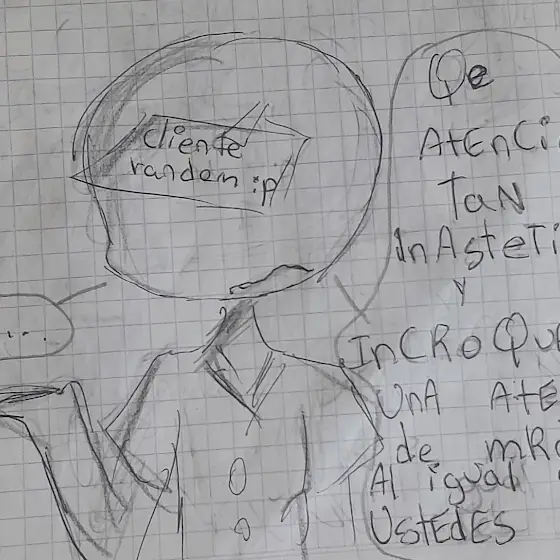 cliente
random :p
...
Qe
AtEnCi
TaN
InAsteTi
y
InCRoQue
UnA AtE
de mRi
Al igual
UstEdEs